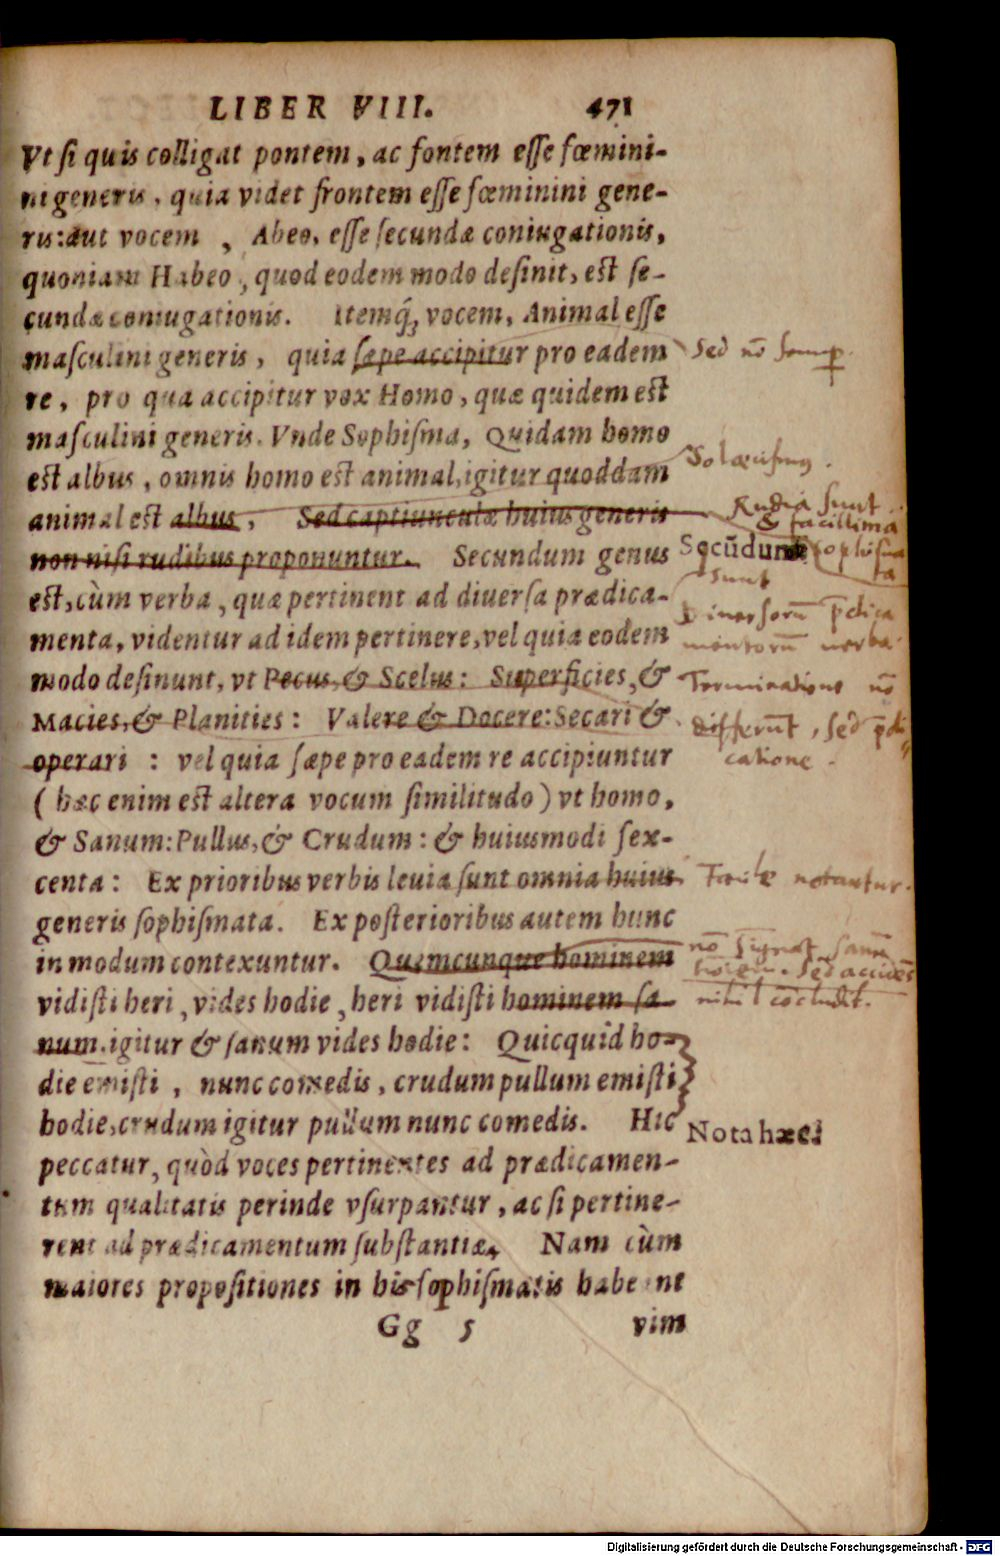 LIBER VIII. 471
Vt si quis colligat pontem, ac fontem esse fœmini-
ni generis, quia videt frontem esse fœminini gene-
ris: aut vocem, Abeo, esse secundæ coniugationis,
quoniam Habeo, quod eodem modo desinit, est se-
cundæ coniugationis. Itemq́; vocem, Animal esse
masculini generis, quia sæpe accipitur pro eadem
Sed nō semp.
re, pro qua accipitur vox Homo, quæ quidem est
masculini generis. Vnde Sophisma, Quidam homo
est albus, omnis homo est animal, igitur quoddam
Solœcismus.
animal est albus. Sed captiunculæ huius generis
Rudia sunt
& facillima
non nisi rudibus proponuntur. Secundum genus
Secūdum
sophisma
ta
est, cùm verba, quæ pertinent ad diuersa prædica-
sunt
Diuersorū p̄dica
menta, videntur ad idem pertinere, vel quia eodem
mentorū verba.
modo desinunt, vt Pecus, & Scelus: Superficies, &
Terminatione nō
Macies, & Planities: Valere & Docere: Secari &
differūt, sed p̄di
operari: vel quia sæpe pro eadem re accipiuntur
catione.
(hæc enim est altera vocum similitudo) vt homo,
& Sanum: Pullus, & Crudum: & huiusmodi sex-
centa: Ex prioribus verbis leuia sunt omnia huius
notantur.
generis sophismata. Ex posterioribus autem hunc
in modum contexuntur. Quemcunque hominem
nō
sed accidēs
vidisti heri, vides hodie, heri vidisti hominem sa-
nihil cōcludit.
num. igitur & sanum vides hodie: Quicquid ho-
die emisti, nunc comedis, crudum pullum emisti
hodie, crudum igitur pullum nunc comedis. Hic
Nota hæc!
peccatur, quòd voces pertinentes ad prædicamen-
tum qualitatis perinde vsurpantur, ac si pertine-
rent ad prædicamentum substantiæ. Nam cùm
maiores propositiones in his sophismatis habeant
Gg 5 vim
Digitalisierung gefördert durch die Deutsche Forschungsgemeinschaft - DFG